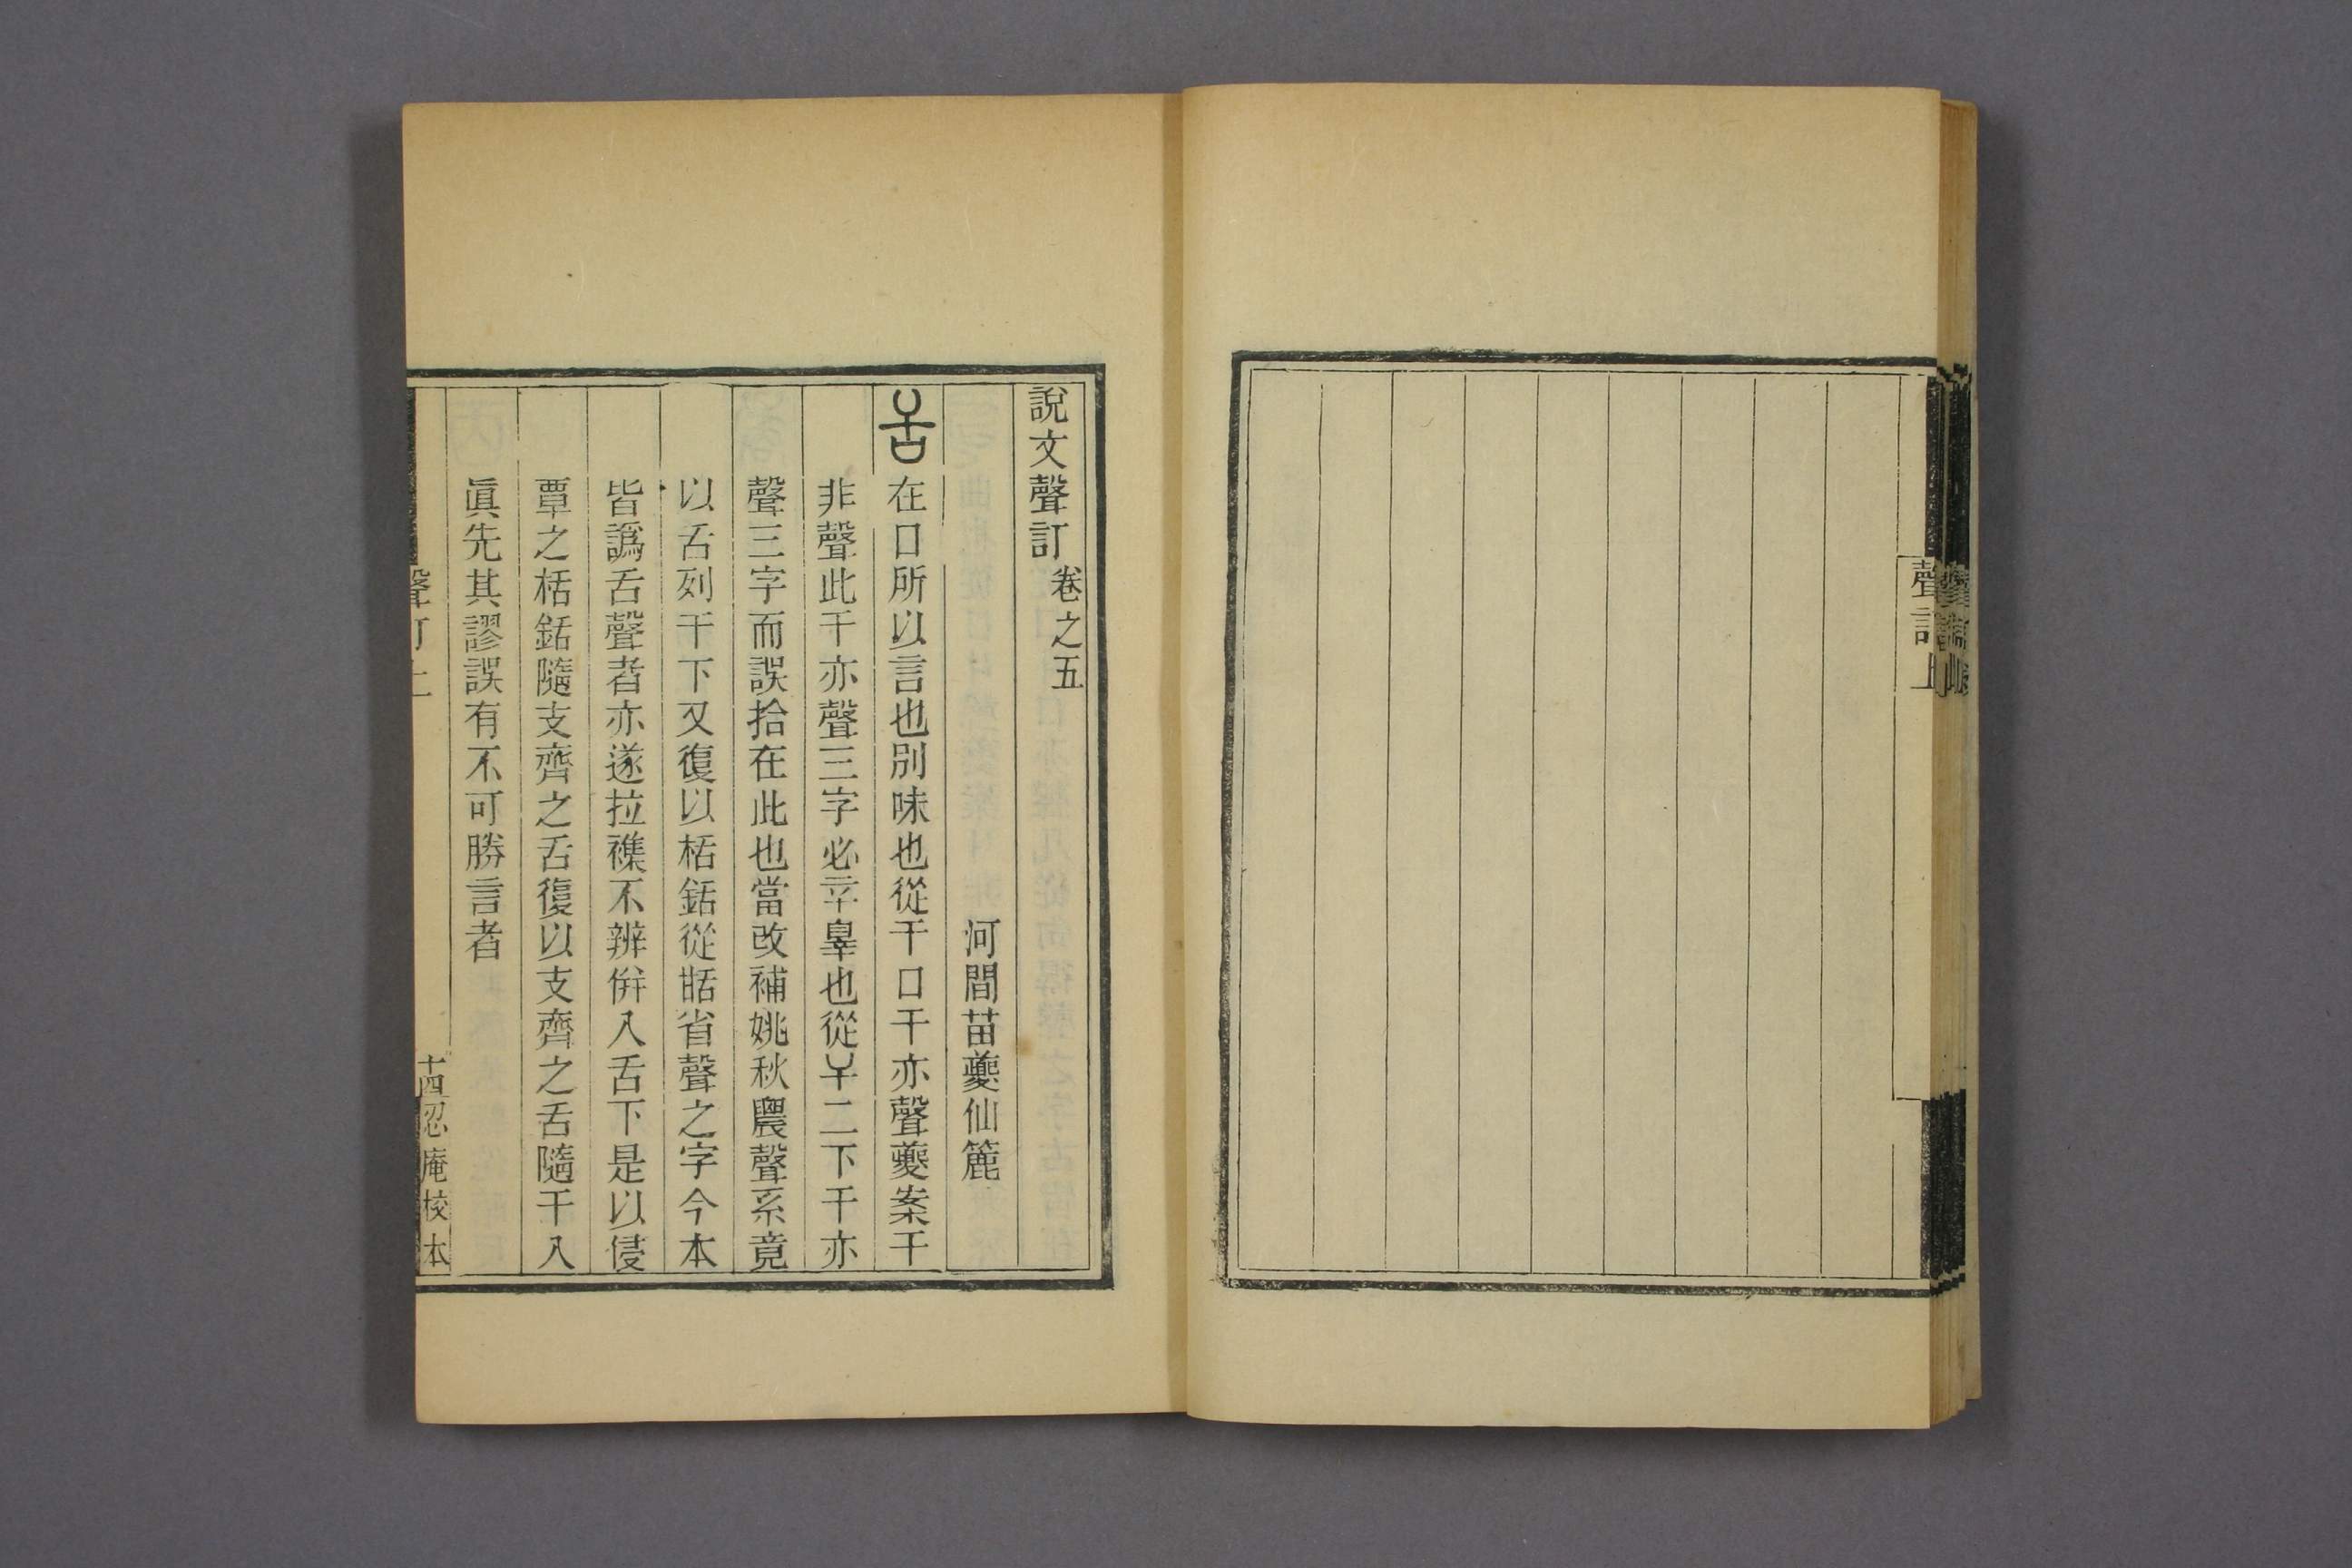 聲訂上
說文聲訂 卷之五
河間苗夔仙簏
舌 在口所以言也別味也從干口干亦聲夔案干
非聲此干亦聲三字必䇂辠也從𢆉二下干亦
聲三字而誤拾在此也當改補姚秋農聲系竟
以舌列干下又復以栝銛從𦧇省聲之字今本
皆譌舌聲者亦遂拉襍不辨倂入舌下是以侵
覃之栝銛隨支齊之舌復以支齊之舌隨干入
眞先其謬誤有不可勝言者
聲訂上
十四
忍庵校本